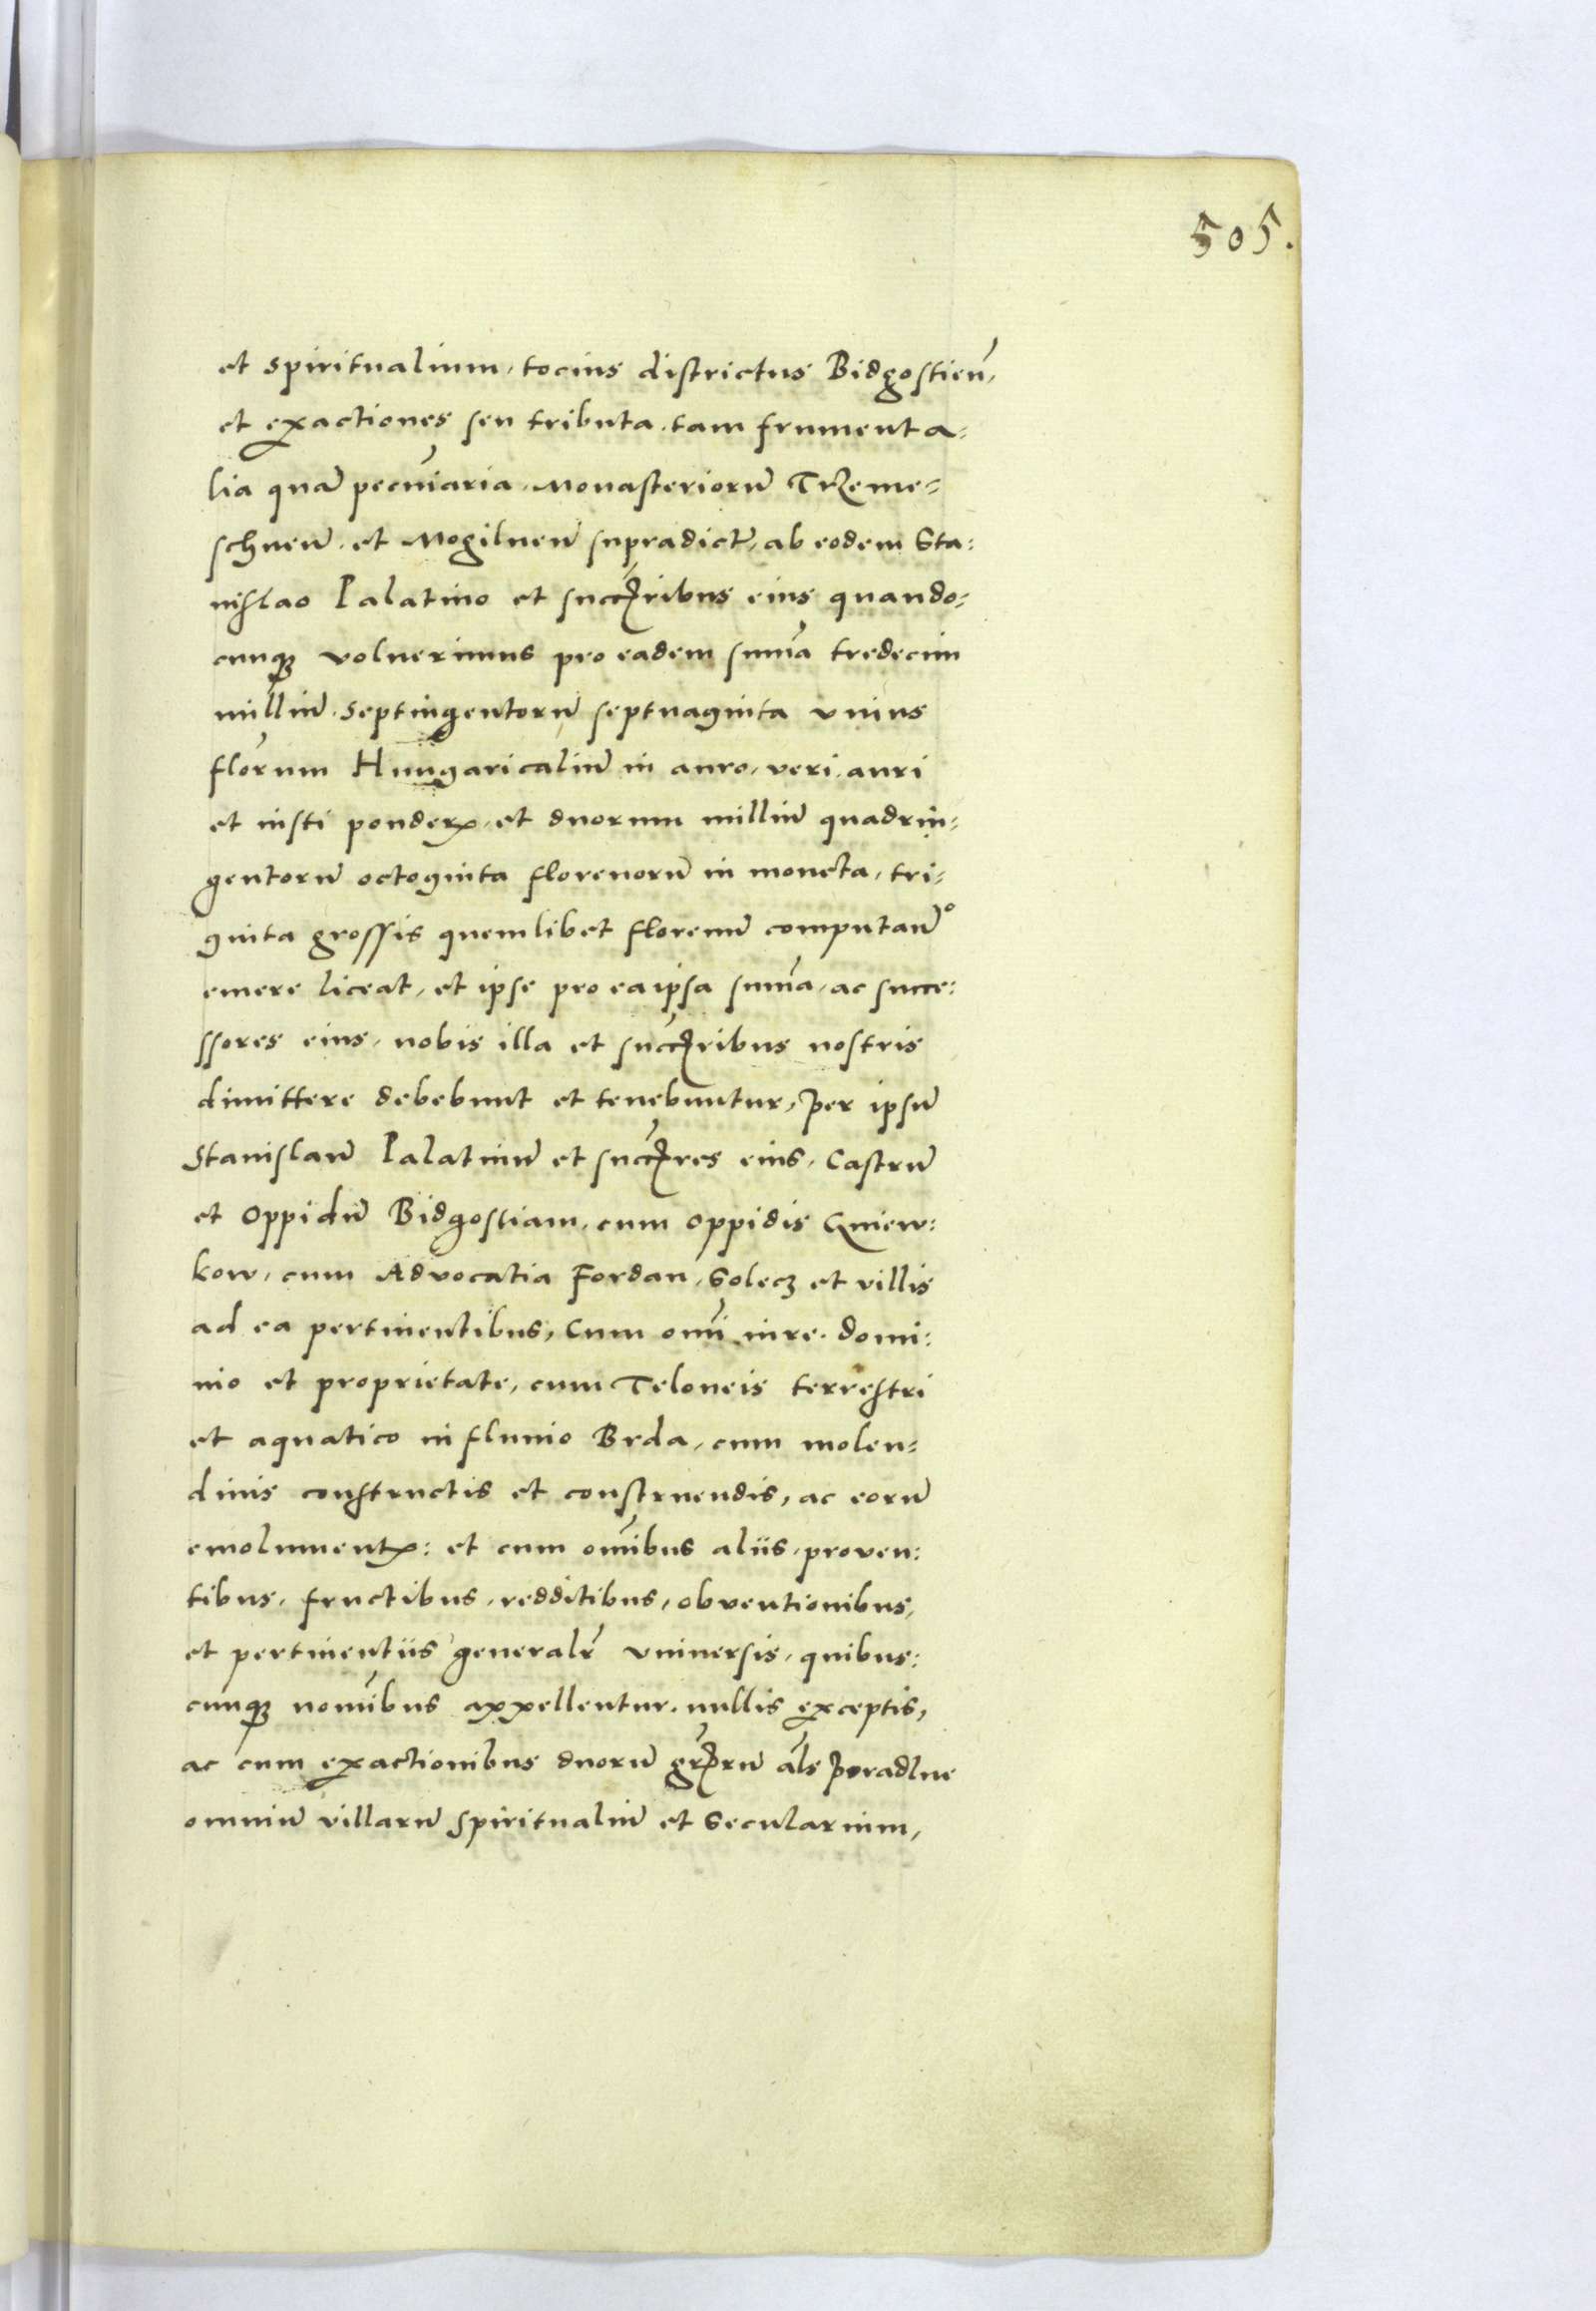 505.
et spiritualium, tocius districtus Bidgostien̄,
et exactiones seu tributa, tam frumenta=
lia quā pecūiaria, Monasteriorū Trzeme=
schneū et Mogilneū supradict̄, ab eodem Sta=
nislao Palatino et succ̄oribus eius quando=
cunqꝫ voluerimus pro eadem suma̅ tredecim
milliū septingentorū septuaginta vnius
florum Hungaricaliū in auro, veri auri
et iusti ponderꝭ, et duorum milliū quadrin=
gentorū octoginta florenorū in moneta, tri=
ginta grossis quemlibet florenū computan̄º
emere liceat, et ipse pro ea ipsa suma̅, ac succe=
ssores eius, nobis illa et succ̄oribus nostris
dimittere debebunt et tenebuntur, per ipsū
Stanislaū Palatinū et succ̄ores eius, Castrū
et Oppidū Bidgostiam, cum oppidis Gniew=
kow, cum Advocatia Fordan, Solecz et villis
ad ea pertinentibus, Cum omī iure, domi=
nio et proprietate, cum Teloneis terrestri
et aquatico in fluuio Brda, cum molen=
dinis constructis et construendis, ac eorū
emolumentꝭ: et cum om̄ibus aliis, proven=
tibus, fructibus, redditibus, obventionibus,
et pertinentiis generalr̄ vniuersis, quibus=
cunqꝫ nomībus appellentur, nullis exceptis,
ac cum exactionibus duorū gr̄orū als̄ poradlne
omniū villarū spiritualiū et Secularium,